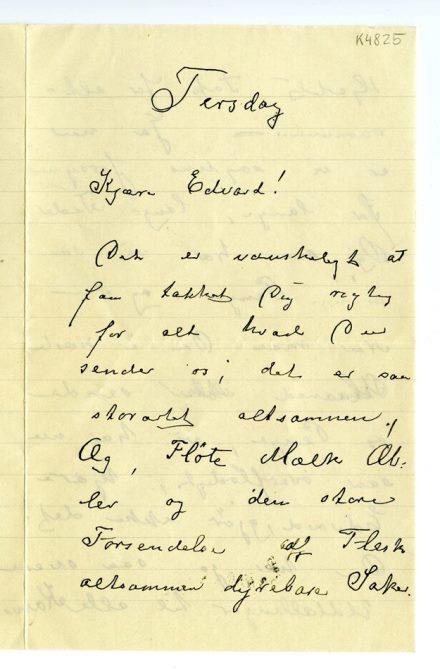 K4825
Tersdag
Kjære Edvard!
Det er vanskeligt at
faa takket Dig rigtig
for alt hvad Du
sender os; det er saa
storartet altsammen!
Æg, Flöte Mælk Æb-
ler og den store
Forsendelse af Flesk
altsammen dyrebare Saker.